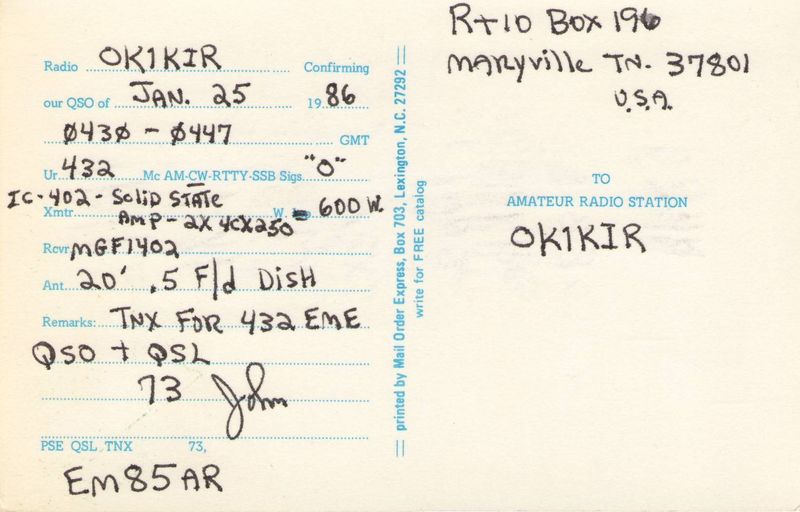 Radio OK1KIR Confirming
our QSO of JAN. 25 1986
0430 - 0447 GMT
Ur 432 Mc AM-CW-RTTY-SSB Sigs "O"
IC-402 - Solid STATE
Xmtr AMP - 2X 4CX250 W. = 600 W.
Rcvr MGF1402
Ant. 20' .5 F/d DISH
Remarks: TNX FOR 432 EME
QSO + QSL
73 John
PSE QSL TNX 73,
EM85AR
printed by Mail Order Express, Box 703, Lexington, N.C. 27292
write for FREE catalog
Rt 10 Box 196
MARYville TN. 37801
U.S.A.
TO
AMATEUR RADIO STATION
OK1KIR